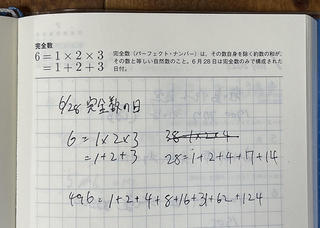 完全数
6 = 1 × 2 × 3
= 1 + 2 + 3
完全数（パーフェクト・ナンバー）は、その数自身を除く約数の和が、
その数と等しい自然数のこと。6月28日は完全数のみで構成された
日付。
6/28 完全数の日
6 = 1×2×3
= 1+2+3
28 = 1+2+4+7+14
496 = 1+2+4+8+16+31+62+124